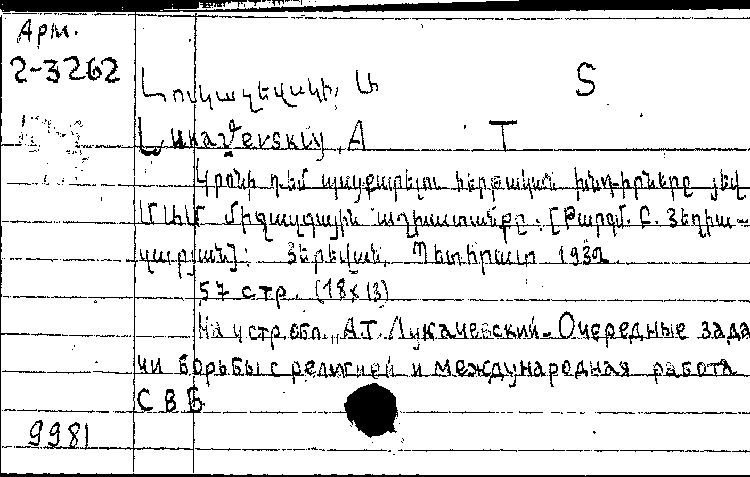 Арм.
2-3262
Լուկաչևսկի, Ա S
Lukačevskiy, A T
Կրոնի դեմ պայքարելու հերթական խնդիրները յեվ
ՄԱՄ միջազգային աշխատանքը. [Թարգմ.
Յերեվան, Պետհրատ 1932
57 стр. (18x13)
На 4 стр. обл. „А.Т. Лукачевский - Очередные зада
чи борьбы с религией и международная работа
СВБ
9981